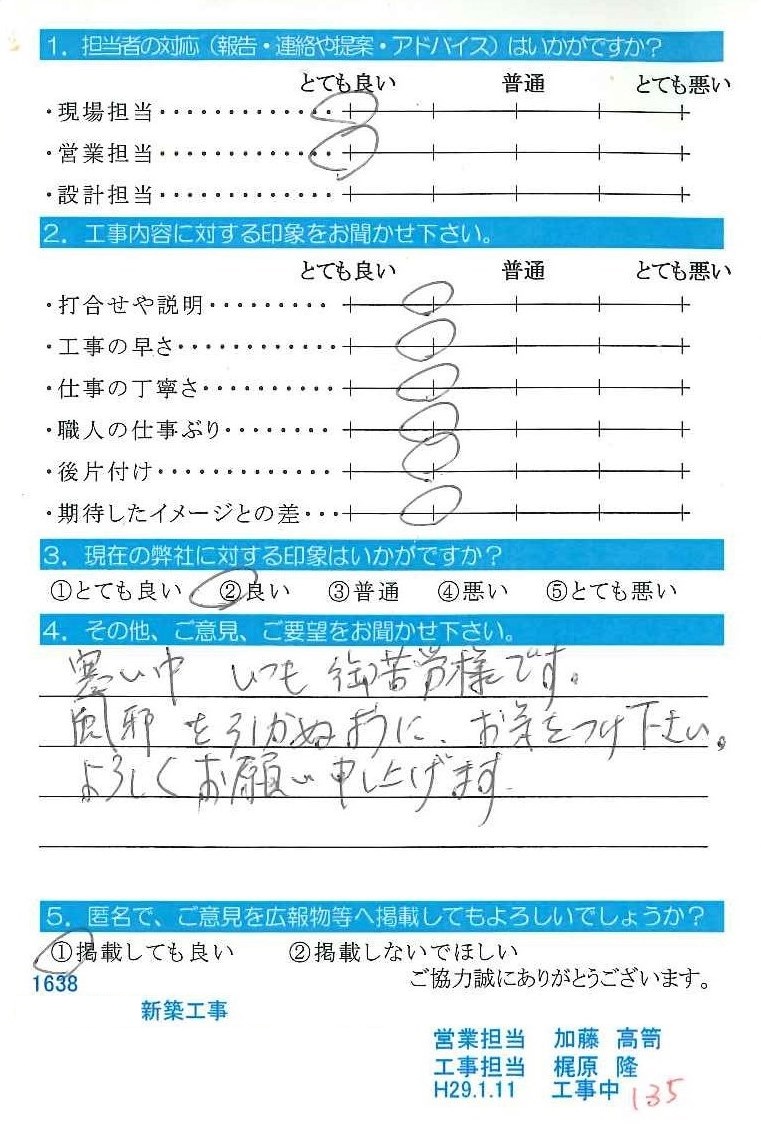 1．担当者の対応（報告・連絡や提案・アドバイス）はいかがですか？
とても良い 普通 とても悪い
・現場担当・・・・・・・・・・・・
・営業担当・・・・・・・・・・・・
・設計担当・・・・・・・・・・・・
2．工事内容に対する印象をお聞かせ下さい。
とても良い 普通 とても悪い
・打合せや説明・・・・・・・・・
・工事の早さ・・・・・・・・・・・・
・仕事の丁寧さ・・・・・・・・・・
・職人の仕事ぶり・・・・・・・・
・後片付け・・・・・・・・・・・・・
・期待したイメージとの差・・・
3．現在の弊社に対する印象はいかがですか？
①とても良い ②良い ③普通 ④悪い ⑤とても悪い
4．その他、ご意見、ご要望をお聞かせ下さい。
寒い中 いつも 御苦労様です。
風邪を引かぬように、お気をつけ下さい。
よろしくお願い申し上げます
5．匿名で、ご意見を広報物等へ掲載してもよろしいでしょうか？
①掲載しても良い ②掲載しないでほしい
ご協力誠にありがとうございます。
1638
新築工事
営業担当 加藤 高笥
工事担当 梶原 隆
H29.1.11 工事中 135